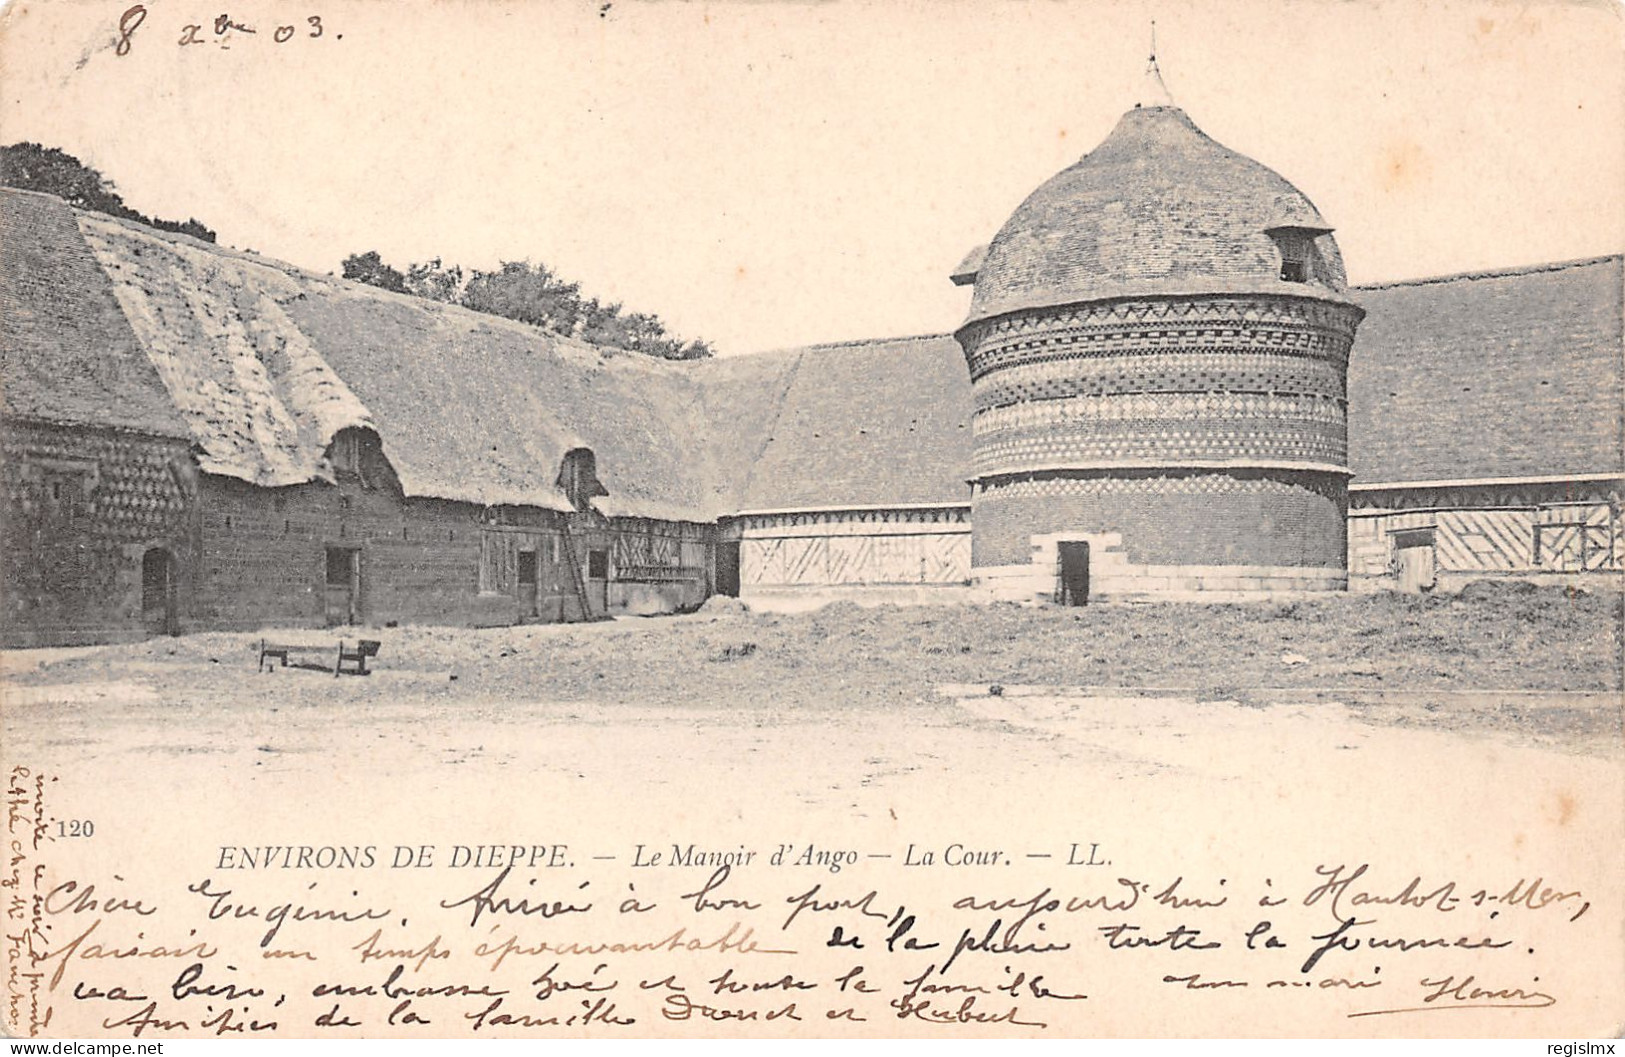 8 Xbre 03.
120
ENVIRONS DE DIEPPE. — Le Manoir d'Ango — La Cour. — LL.
Chère Eugénie. Arrivé à bon port, aujourd'hui à Hautot-s-Mer,
faisait un temps épouvantable de la pluie toute la journée.
va bien, embrasse Zoé et toute la famille ton mari Henri
Amitiés de la famille Drouet et Hubert
invité ce soir à prendre
le thé chez Mr
delcampe.net
regislmx